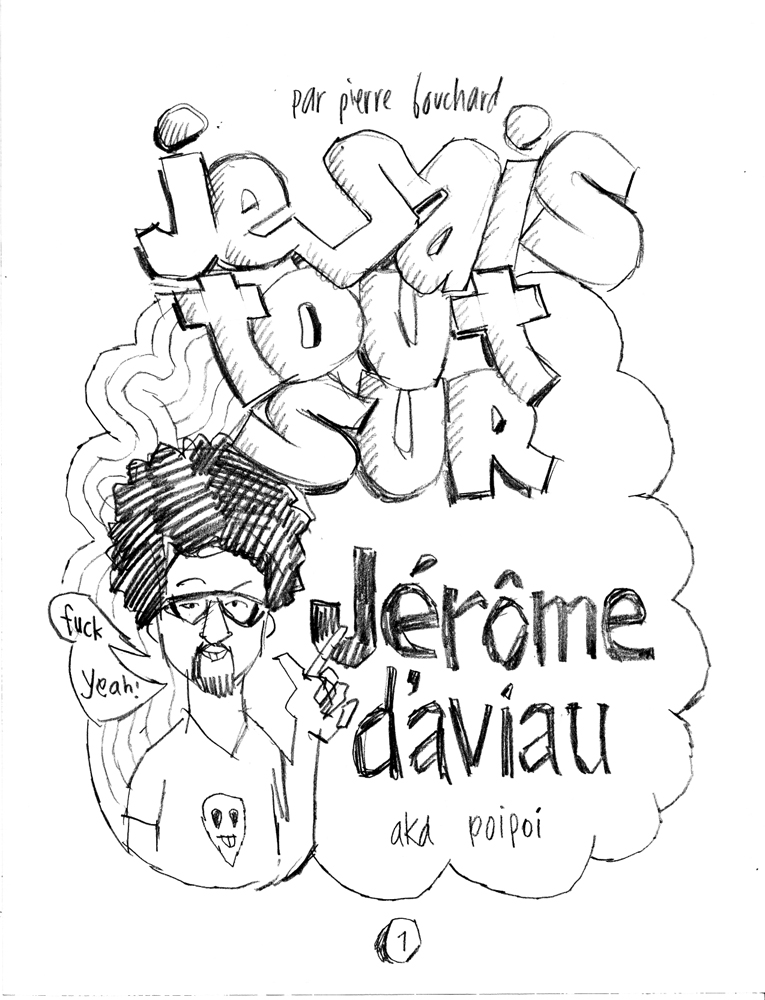 par pierre bouchard
je sais
tout
sur
Jérôme
d'aviau
aka poipoi
fuck
yeah!
1